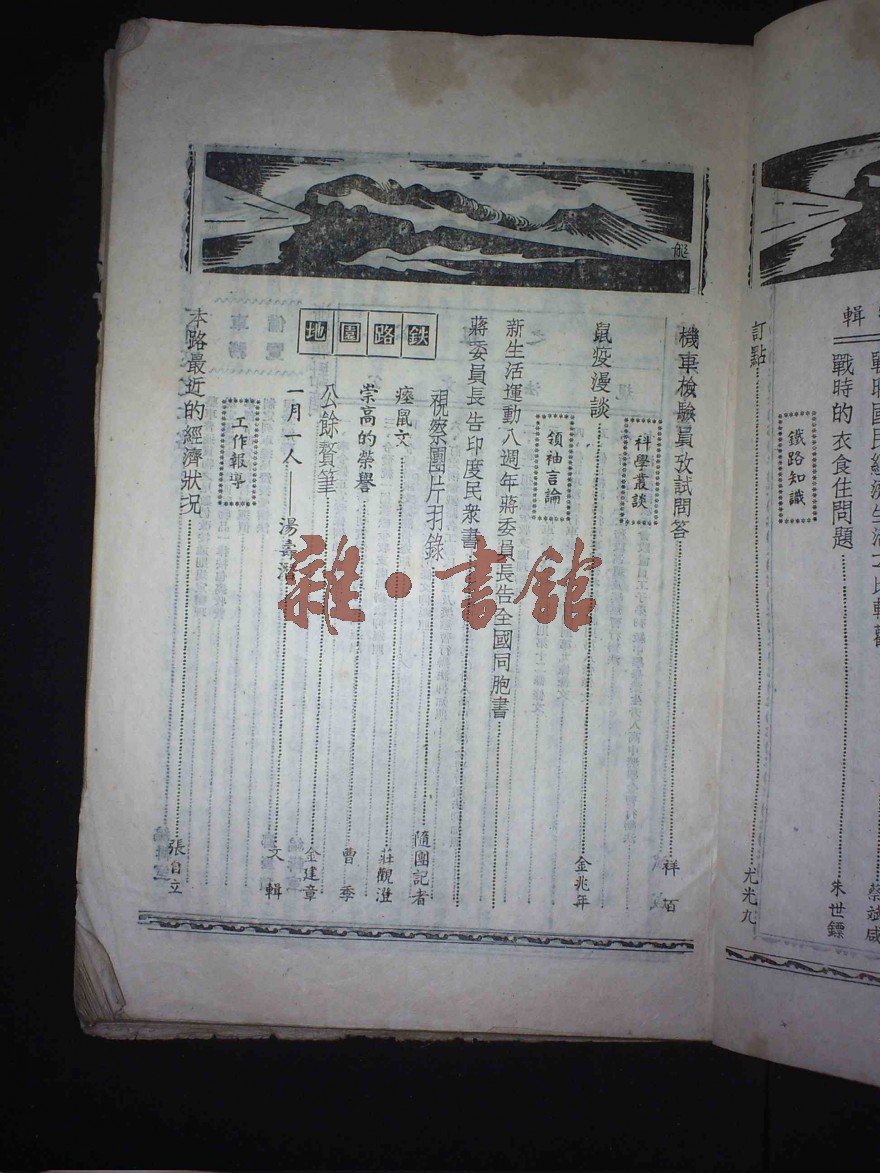 輯
戰時的衣食住問題
朱世鏢
鐵路知識
訂點
尤光九
機車檢驗員攷試問答
祥百
科學叢談
鼠疫漫談
金兆年
領袖言論
新生活運動八週年蔣委員長告全國同胞書
蔣委員長告印度民衆書
鉄路園地
視察團片羽錄
隨團記者
瘞鼠文
莊觀澄
崇高的榮譽
曹季
公餘贅筆
金建章
一月一人——湯壽潛
文輯
工作報導
本路最近的經濟狀况
張自立
雜·書館